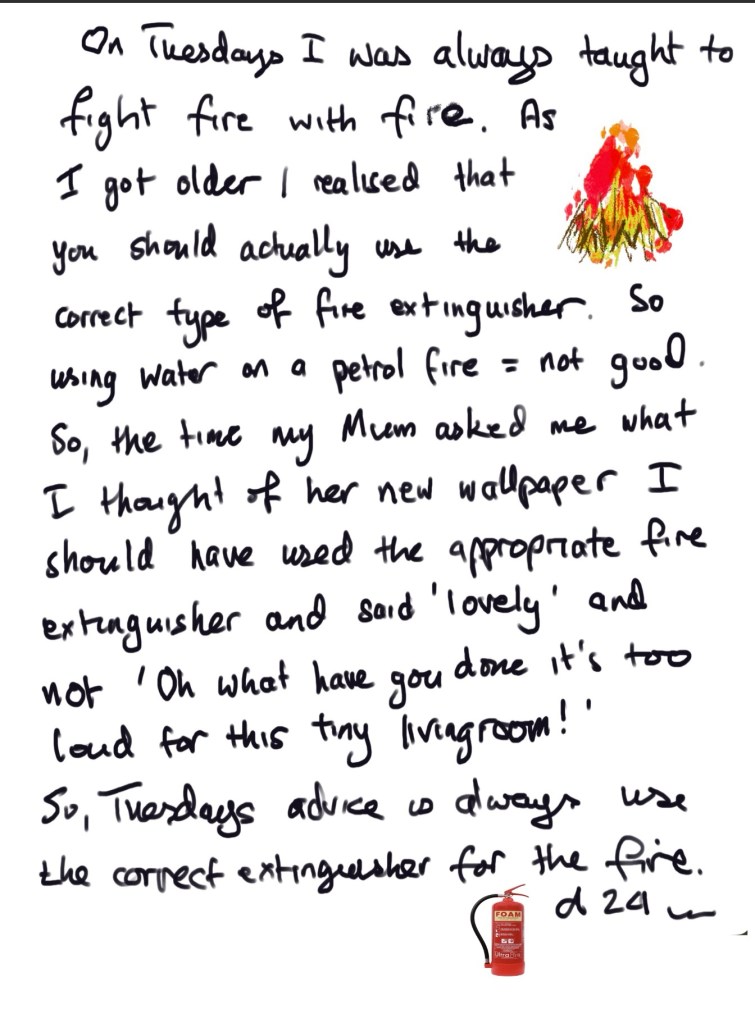 On Tuesdays I was always taught to
fight fire with fire. As
I got older I realised that
you should actually use the
correct type of fire extinguisher. So
using water on a petrol fire = not good.
So, the time my Mum asked me what
I thought of her new wallpaper I
should have used the appropriate fire
extinguisher and said 'lovely' and
not 'Oh what have you done it's too
loud for this tiny livingroom!'
So, Tuesdays advice is always use
the correct extinguisher for the fire.
d 24
FOAM